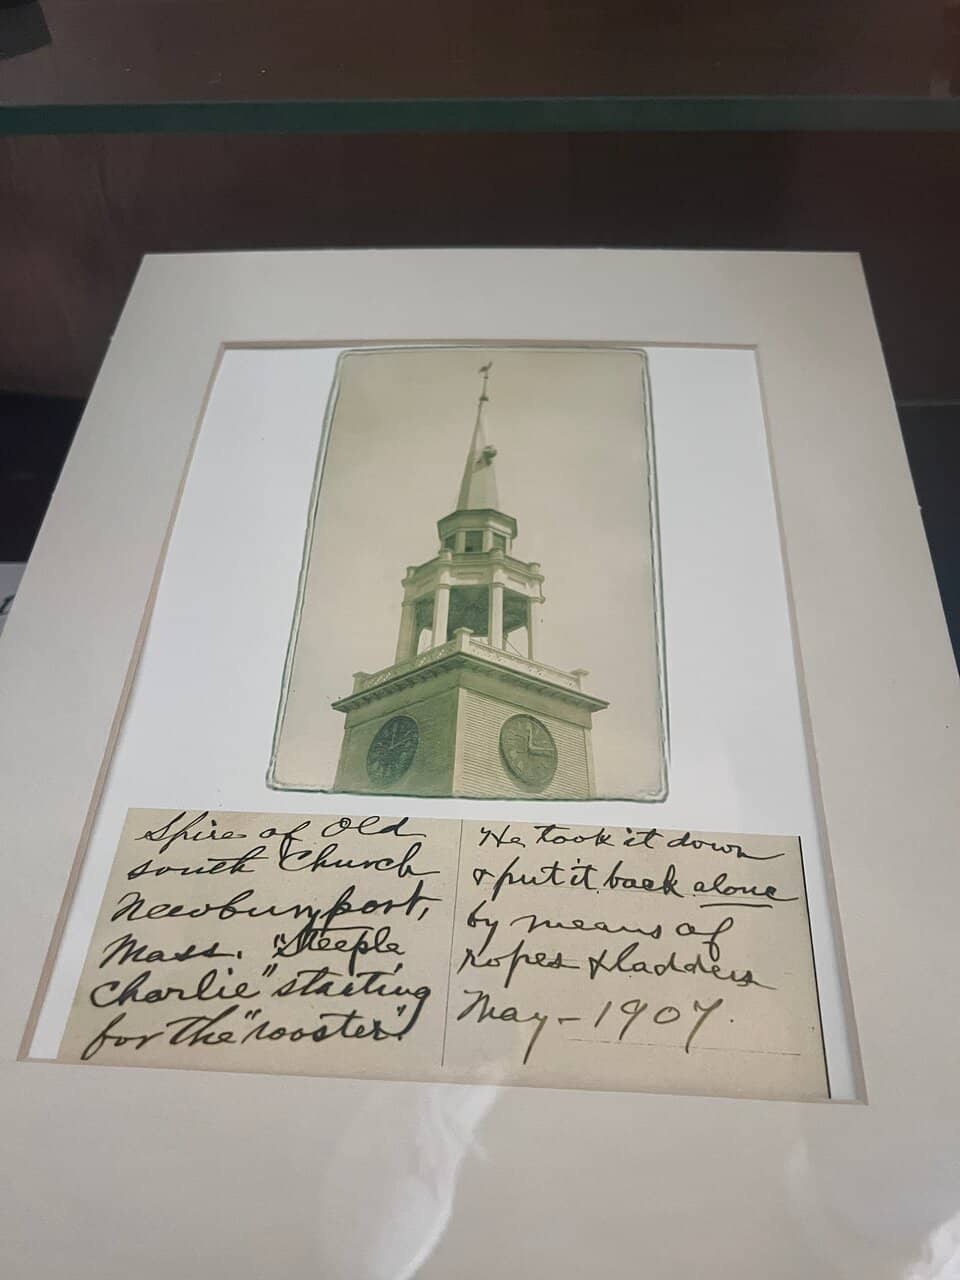 Spire of Old
south Church
Newburyport,
Mass. "Steeple
Charlie" starting
for the "rooster".
He took it down
& put it back alone
by means of
ropes & ladders
May - 1907.